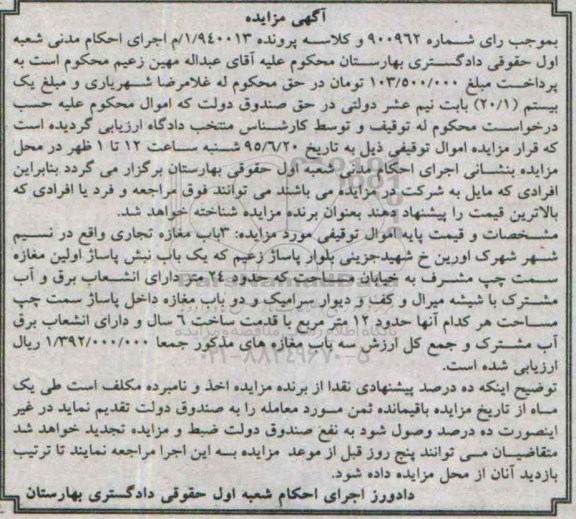 آگهی مزایده
بموجب رای شماره ۹۰۰۹۶۲ و کلاسه پرونده ۱/۹۴۰۰۱۳/م اجرای احکام مدنی شعبه
اول حقوقی دادگستری بهارستان محکوم علیه آقای عبداله مهین زعیم محکوم است به
پرداخت مبلغ ۱۰۳/۵۰۰/۰۰۰ تومان در حق محکوم له غلامرضا شهریاری و مبلغ یک
بیستم (۲۰/۱) بابت نیم عشر دولتی در حق صندوق دولت که اموال محکوم علیه حسب
درخواست محکوم له توقیف و توسط کارشناس منتخب دادگاه ارزیابی گردیده است
که قرار مزایده اموال توقیفی ذیل به تاریخ ۹۵/۶/۲۰ شنبه ساعت ۱۲ تا ۱ ظهر در محل
مزایده بنشانی اجرای احکام مدنی شعبه اول حقوقی بهارستان برگزار می گردد بنابراین
افرادی که مایل به شرکت در مزایده می باشند می توانند فوق مراجعه و فرد یا افرادی که
بالاترین قیمت را پیشنهاد دهند بعنوان برنده مزایده شناخته خواهد شد.
مشخصات و قیمت پایه اموال توقیفی مورد مزایده: ۳باب مغازه تجاری واقع در نسیم
شهر شهرک اورین خ شهیدجزینی بلوار پاساژ زعیم که یک باب نبش پاساژ اولین مغازه
سمت چپ مشرف به خیابان مساحت که حدود ۲۴ متر دارای انشعاب برق و آب
مشترک با شیشه میرال و کف و دیوار سرامیک و دو باب مغازه داخل پاساژ سمت چپ
مساحت هر کدام آنها حدود ۱۲ متر مربع با قدمت ساخت ۶ سال و دارای انشعاب برق
آب مشترک و جمع کل ارزش سه باب مغازه های مذکور جمعا ۱/۳۹۲/۰۰۰/۰۰۰ ریال
ارزیابی شده است.
توضیح اینکه ده درصد پیشنهادی نقدا از برنده مزایده اخذ و نامبرده مکلف است طی یک
ماه از تاریخ مزایده باقیمانده ثمن مورد معامله را به صندوق دولت تقدیم نماید در غیر
اینصورت ده درصد وصول شود به نفع صندوق دولت ضبط و مزایده تجدید خواهد شد
متقاضیان می توانند پنج روز قبل از موعد مزایده به این اجرا مراجعه نمایند تا ترتیب
بازدید آنان از محل مزایده داده شود.
دادورز اجرای احکام شعبه اول حقوقی دادگستری بهارستان